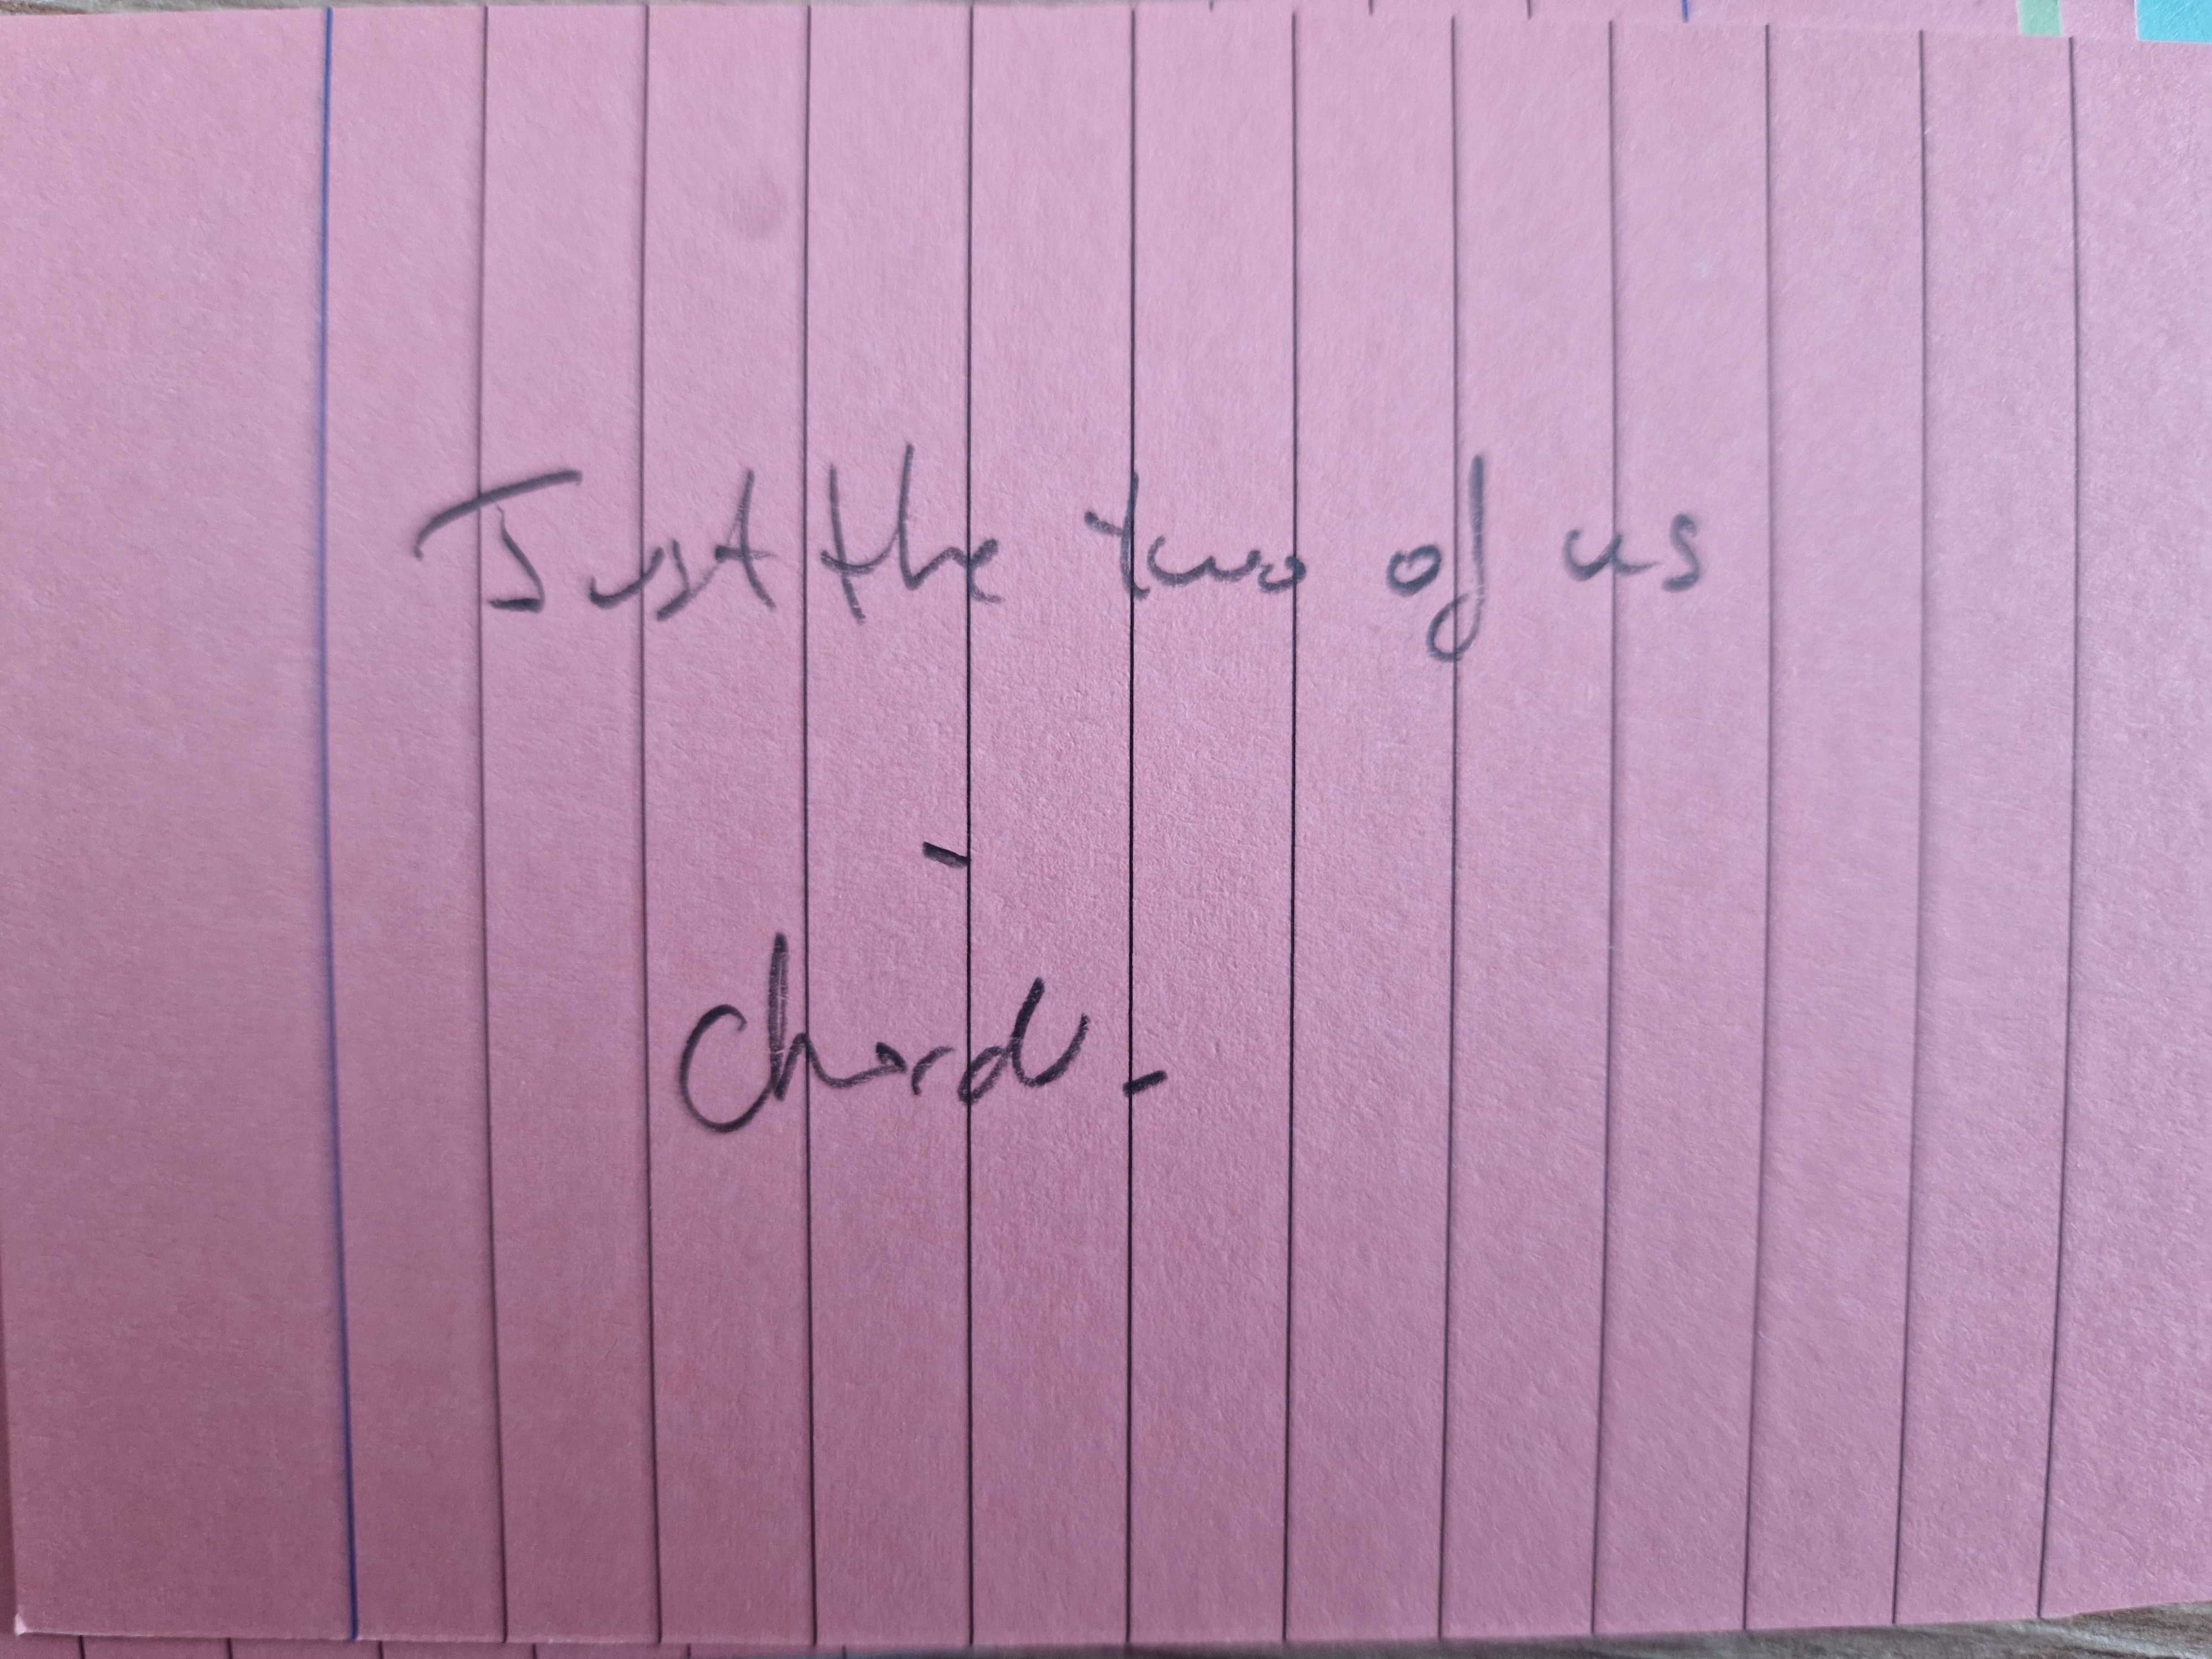 Just the two of us
-
chords -